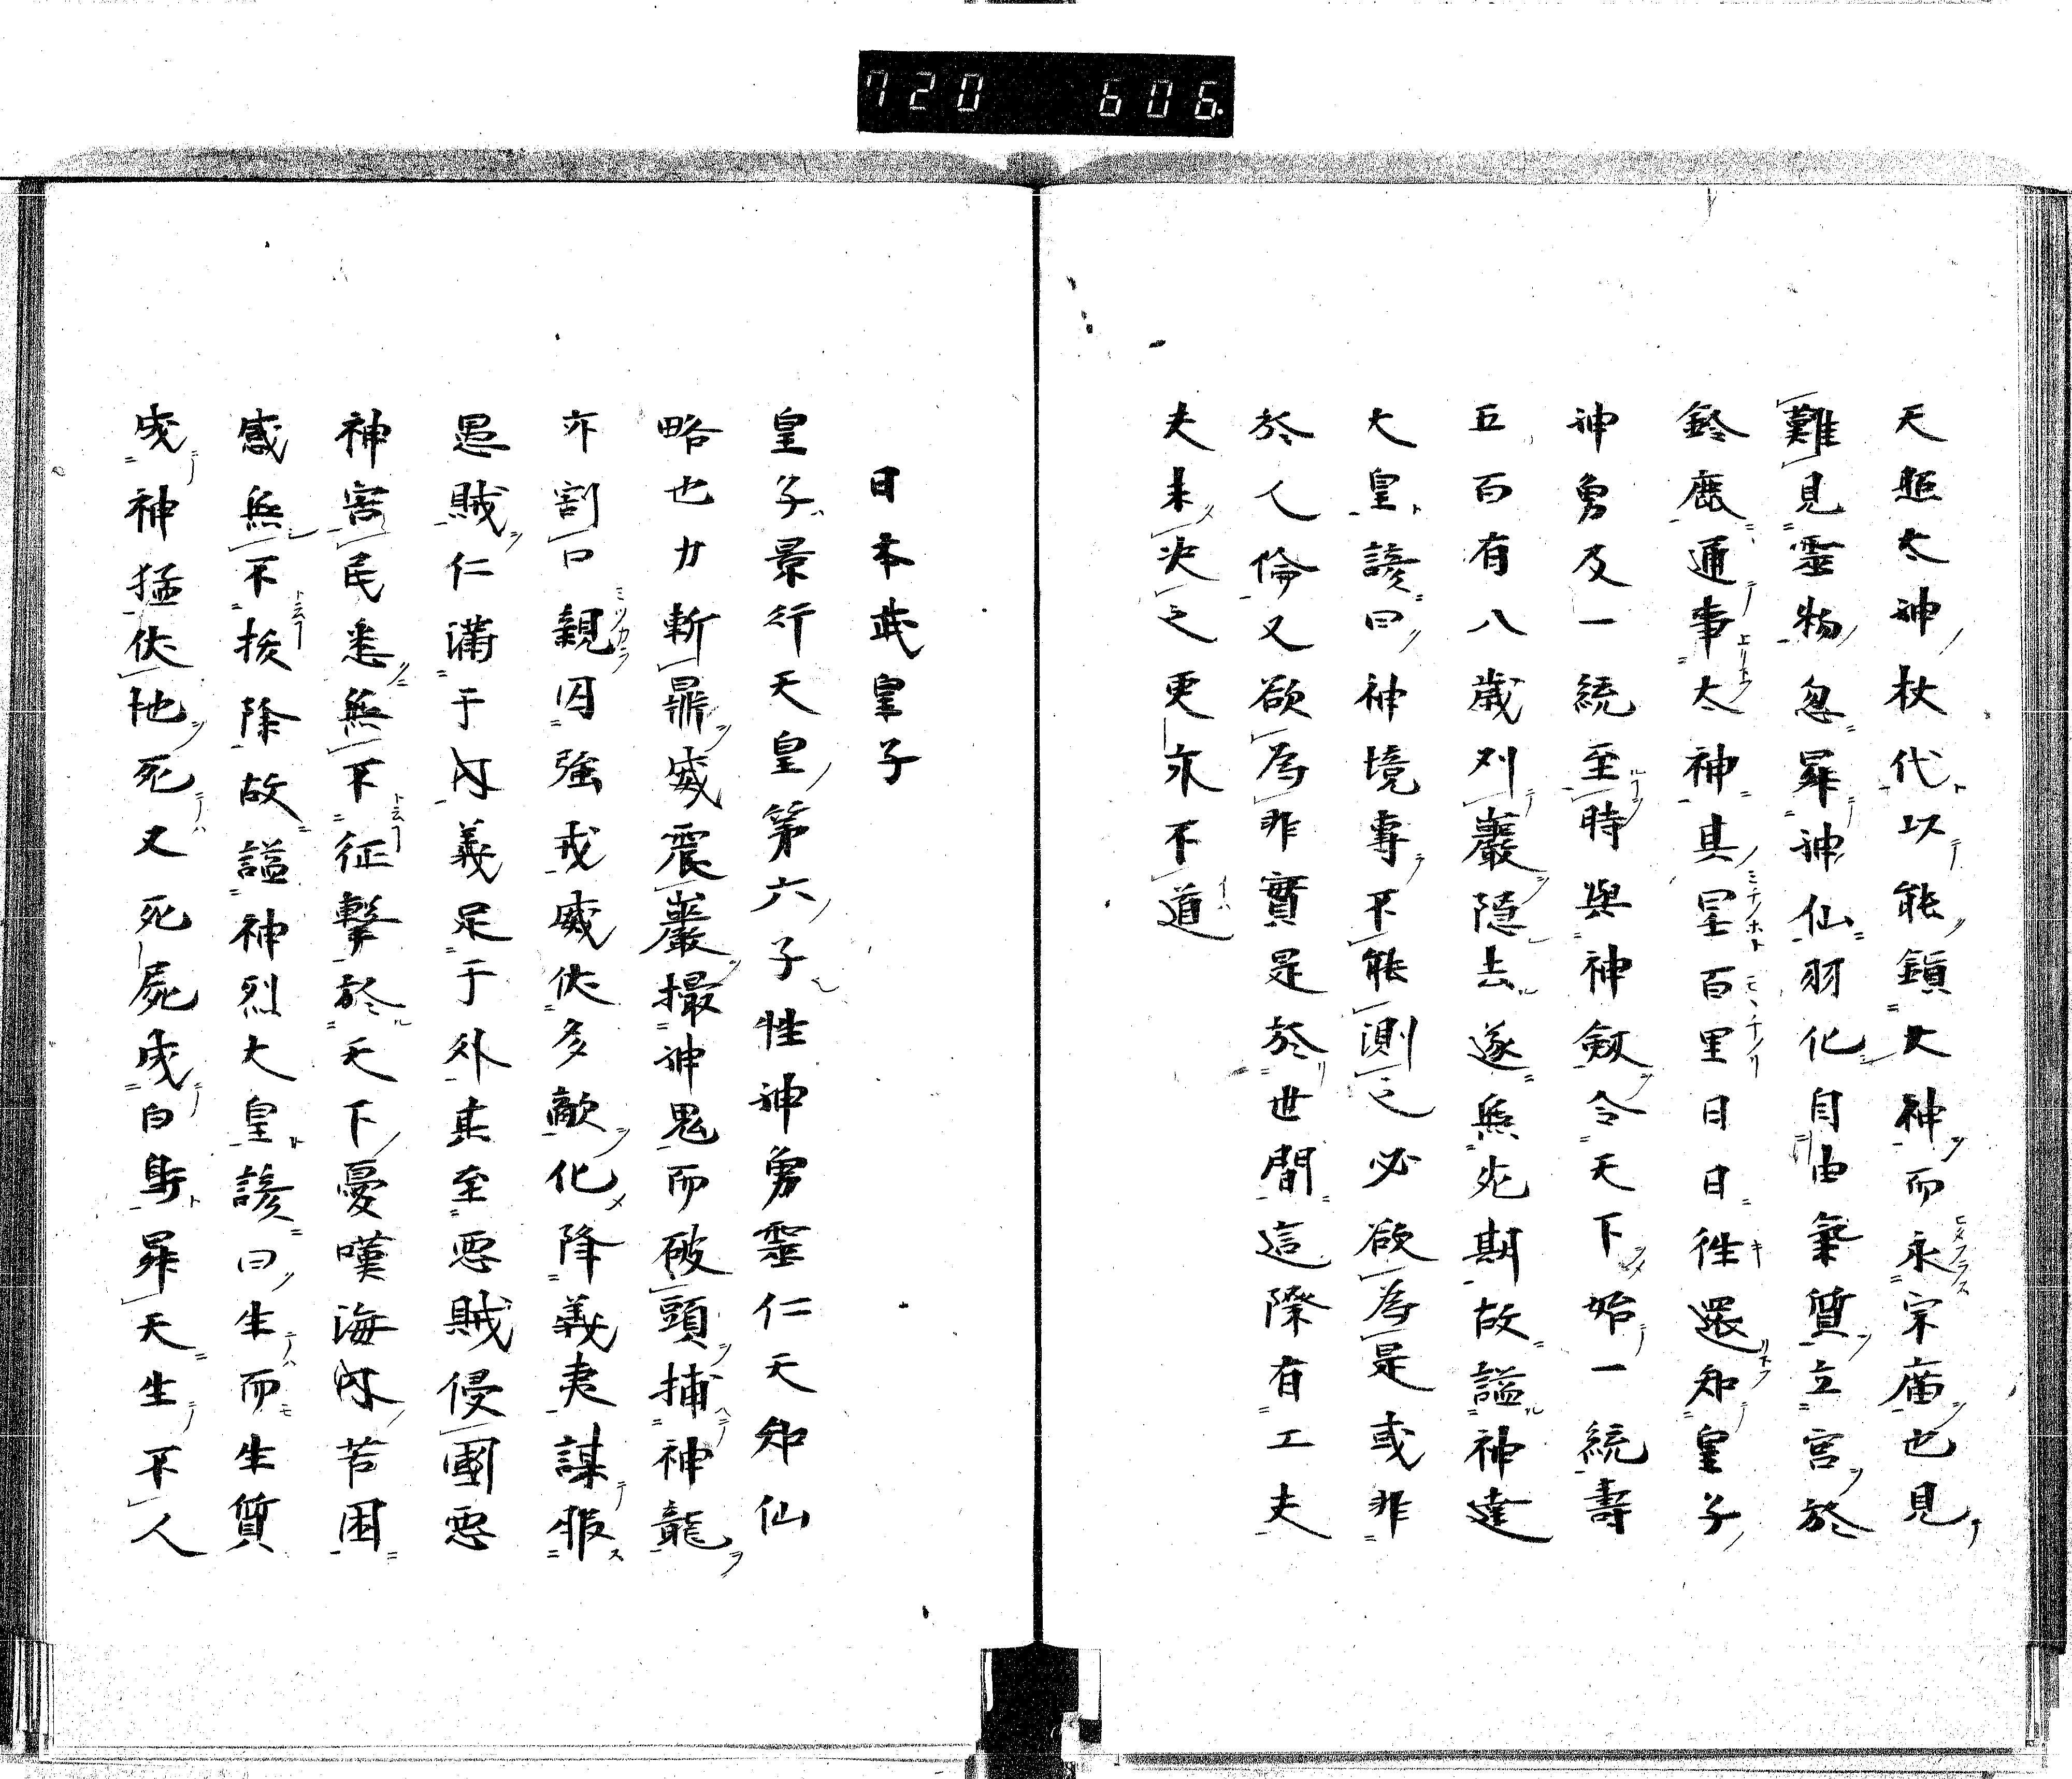 720 606.
天照太神杖代以能鎮大神而永宗庿也見
難見霊物忽昇神仙羽化自由氣質立宮於
鈴鹿通事太神其星百里日日徃還知皇子
神勇及一統至時與神劔令天下始一統壽
五百有八歳列巖隠去遂無死期故謚神達
大皇諺曰神境專不能測之必欲為是或非
於人倫又欲為非實是於世間這際有工夫
夫来决之更求不道
日本武皇子
皇子景行天皇第六子性神勇霊仁天知仙
略也力斬鼎威震巖撮神鬼而破頭捕神龍
亦割口親囚強戎威伏多敵化降義夷謀服
愚賊仁満于内義足于外其至悪賊侵國悪
神害民悉無不征撃於天下憂嘆海内苦困
感無不抜除故謚神烈大皇諺曰生而生質
成神猛伏地死又死屍成白鳥昇天生不人